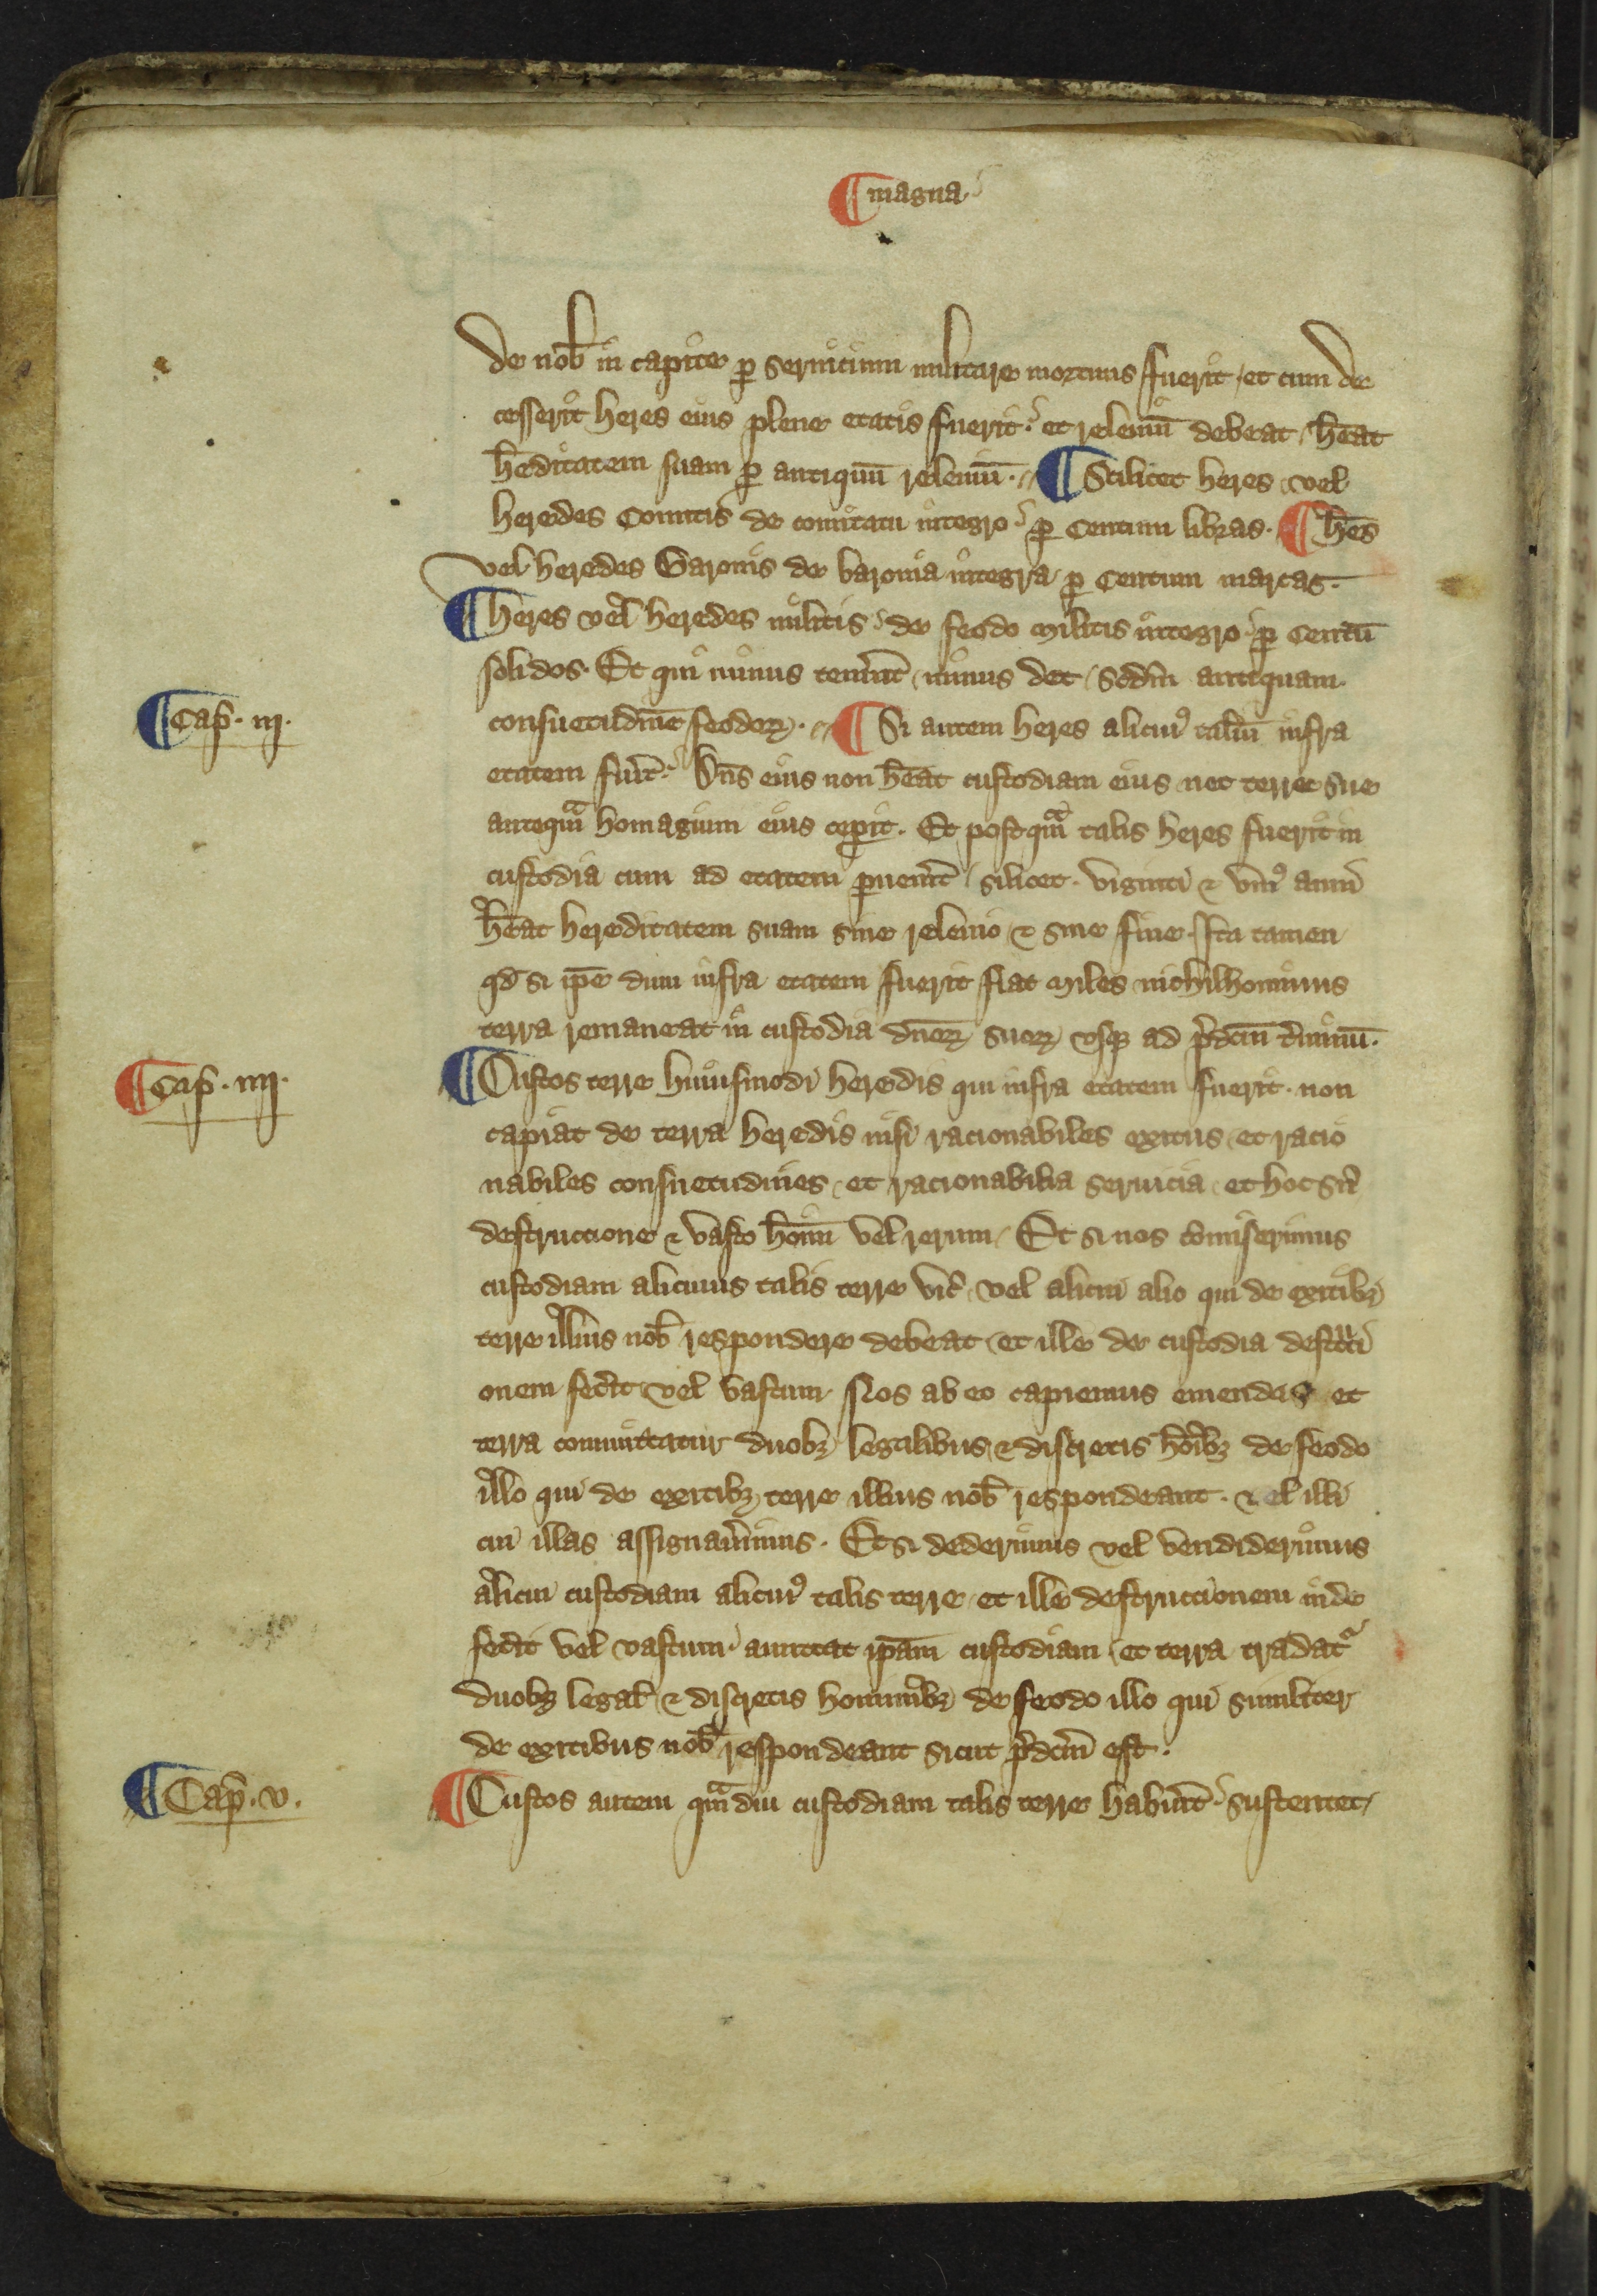 ¶ magna
de nob̄ in capite ꝑ seruicium militare mortuus fuerit / et cum de
cesserit heres eius plene etatis fuerit · et releuiū debeat / h̄eat
h̄editatem suam ꝑ antiquū releuiū · ¶ Scilicet heres vel
heredes Comitis de comitatu integro ꝑ Centum libras · ¶ h̄es
vel heredes Baronis de baronia integra ꝑ Centum marcas ·
¶ heres vel heredes militis de feodo militis integro ꝑ Centū
solidos · Et qui minus tenu̾it / minus det / Scd̄m antiquam
Cap̄ · iij ·
consuetudinē feodoꝝ · ¶ Si autem heres alicuiꝰ taliū infra
etatem fu̾it · Dn̄s eius non h̄eat custodiam eius nec terre sue
antequᵃm homagium eius ceperit · Et postquᵃm talis heres fuerit in
custodia cum ad etatem ꝑuenerit / silicet · viginti ⁊ vniꝰ anni
h̄eat hereditatem suam sine releuio ⁊ sine fine · Ita tamen
qd̄ si ip̄e dum infra etatem fuerit fiat miles nichilhominus
terra remaneat in custodia dn̄oꝝ suoꝝ vsqꝫ ad p̄dcm̄ t̾minū ·
Cap̄ · iiij ·
¶ Custos terre huiusmodi heredis qui infra etatem fuerit · non
capiat de terra heredis nisi racionabiles exitus / et racio
nabiles consuetudines / et racionabilia seruicia / et hoc sn̾
destruccione ⁊ vasto ho̅im̄ vel rerum / Et si nos comiserimus
custodiam alicuius talis terre vic̾ / vel alicui alio qui de exitibꝫ
terre illius nob̄ respondere debeat / et ille de custodia destᵘcci
onem fec̾it vel vastum · Nos ab eo capiemus emendas et
terra committatur duobꝫ legalibus ⁊ discretis ho̅ibꝫ de feodo
illo qui de exitibꝫ terre illius nob̄ respondeant · vel illi
cui illas assignau̾imus · Et si dederimus vel vendiderimus
alicui custodiam alicuiꝰ talis terre / et ille destruccionem inde
fec̾it vel vastum amittat ip̄am custodiam / et terra tradatᷣ
duobꝫ legal̄ ⁊ discretis hominibꝫ de feodo illo qui similiter
de exitibus nob̄ respondeant sicut p̄dcm̄ est ·
Cap̄ · v ·
¶ Custos autem quᵃmdiu custodiam talis terre habu̾it sustentet